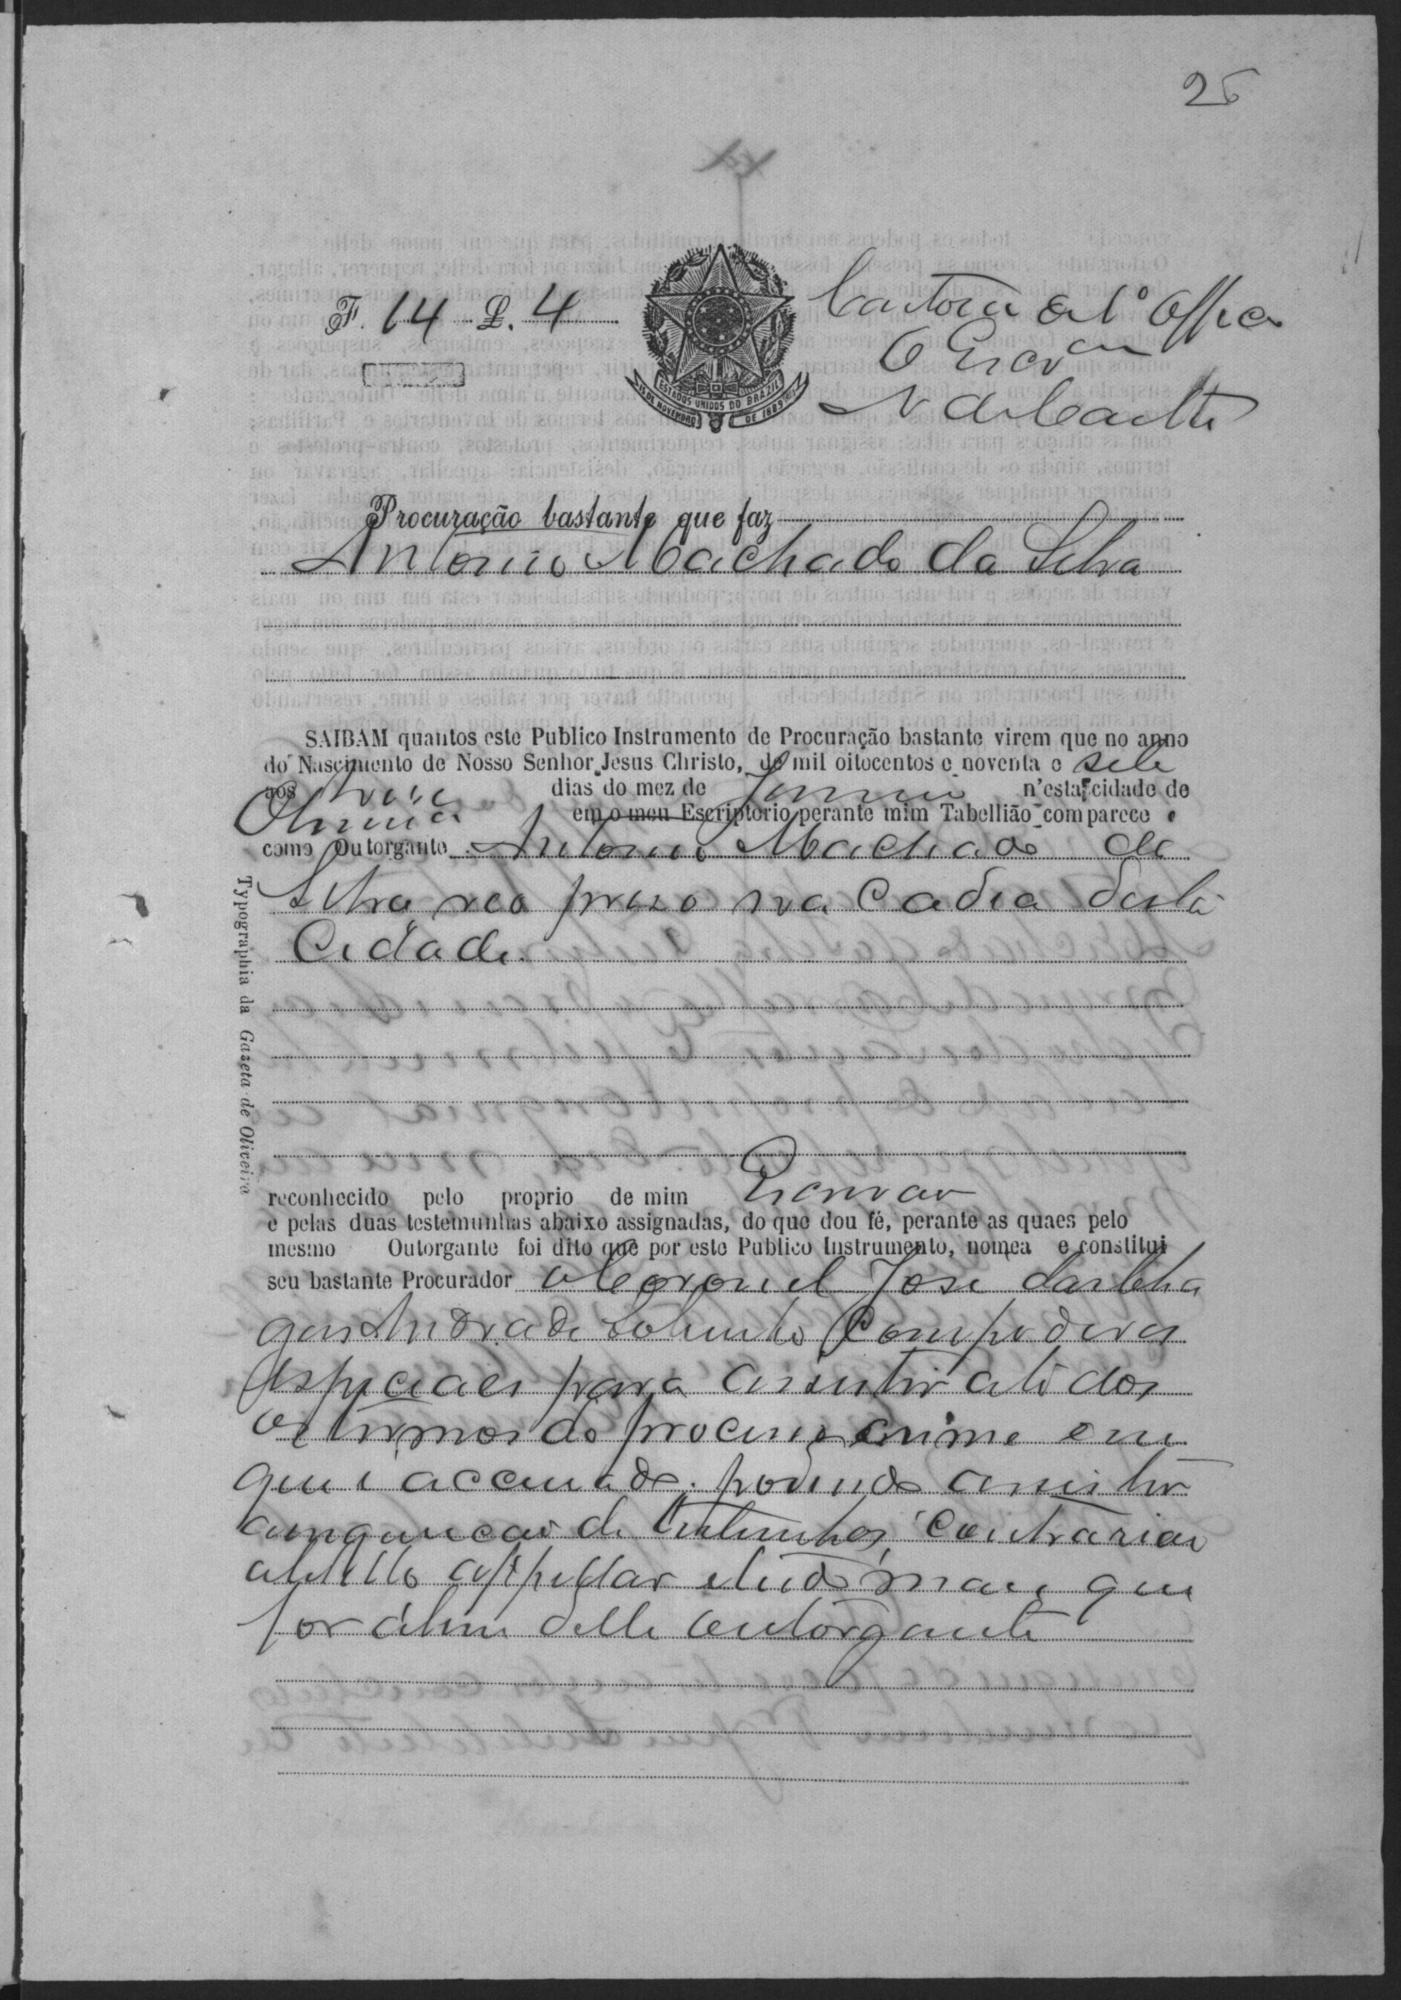 25
F. 14 L. 4
Cartorio do 1º Officio
O Escrvam
N de Castro
ESTADOS UNIDOS DO BRAZIL
15 DE NOVEMBRO DE 1889
Procuração bastante que faz
Antonio Machado da Silva
SAIBAM quantos este Publico Instrumento de Procuração bastante virem que no anno
do Nascimento de Nosso Senhor Jesus Christo, de mil oitocentos e noventa e sete
aos treze dias do mez de n'esta cidade de
Oliveira em o meu Escriptorio perante mim Tabellião comparece
como Outorgante Antonio Machado da
Silva reo prezo na Cadea desta
Cidade.
reconhecido pelo proprio de mim Escrivão
e pelas duas testemunhas abaixo assignadas, do que dou fé, perante as quaes pelo
mesmo Outorgante foi dito que por este Publico Instrumento, nomea e constitui
seu bastante Procurador o Coronel José das Cha
gas Andrade Sobrinho Com poderes
especiaes para assistir a todos
os termos do processo crime em
que é accusado, podendo assistir
a inquirição de testemunhas, contrariar
o libello appellar e tudo mais que
for a bem delle outorgante
Typographia da Gazeta de Oliveira